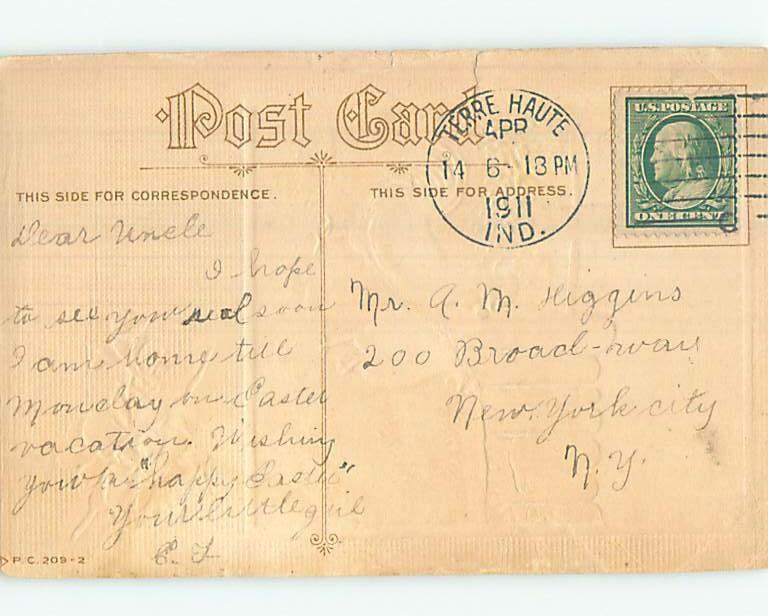 Post Card
TERRE HAUTE
APR
14 6-13 PM
1911
IND.
U.S. POSTAGE
ONE CENT
THIS SIDE FOR CORRESPONDENCE.
THIS SIDE FOR ADDRESS.
Dear Uncle
I hope
to see you real soon
I am home till
Monday on Easter
vacation. Wishing
you a "happy Easter"
Your little girl
Mr. A. M. Higgins
200 Broad-way
New York city
N.Y.
P.C. 209-2